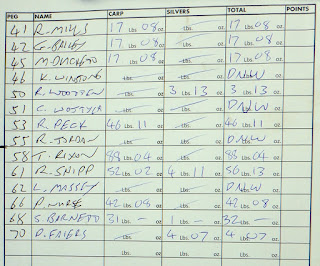 PEG NAME CARP SILVERS TOTAL POINTS
41 R. MILLS 17 Lbs 08 oz Lbs. oz 17 Lbs 08 oz
42 G. BAILEY 17 Lbs 08 oz Lbs. oz 17 Lbs 08 oz
45 M. DUCKETT 17 Lbs 08 oz Lbs. oz 17 Lbs 08 oz
46 K. Lbs. oz Lbs. oz DNW
50 R. WOOTTEN Lbs. oz 3 Lbs 13 oz 3 Lbs. 13 oz
51 C. Lbs. oz Lbs. oz DNW
53 R. PECK 46 Lbs. 11 oz Lbs. oz 46 Lbs. 11 oz
55 R. JORDAN Lbs. oz Lbs. oz DNW
58 T. RIXON 88 Lbs. 04 oz Lbs. oz 88 Lbs. 04 oz
61 R. SNIPP 52 Lbs. 02 oz 4 Lbs. 11 oz 56 Lbs. 13 oz
62 L. MASSEY Lbs. oz Lbs. oz DNW
66 P. NURSE 42 Lbs. 08 oz Lbs. oz 42 Lbs. 08 oz
68 S. BARNETT 31 Lbs. – oz 1 Lbs. – oz 32 Lbs. – oz
70 P. FRIERS Lbs. oz 4 Lbs. 07 oz 4 Lbs. 07 oz